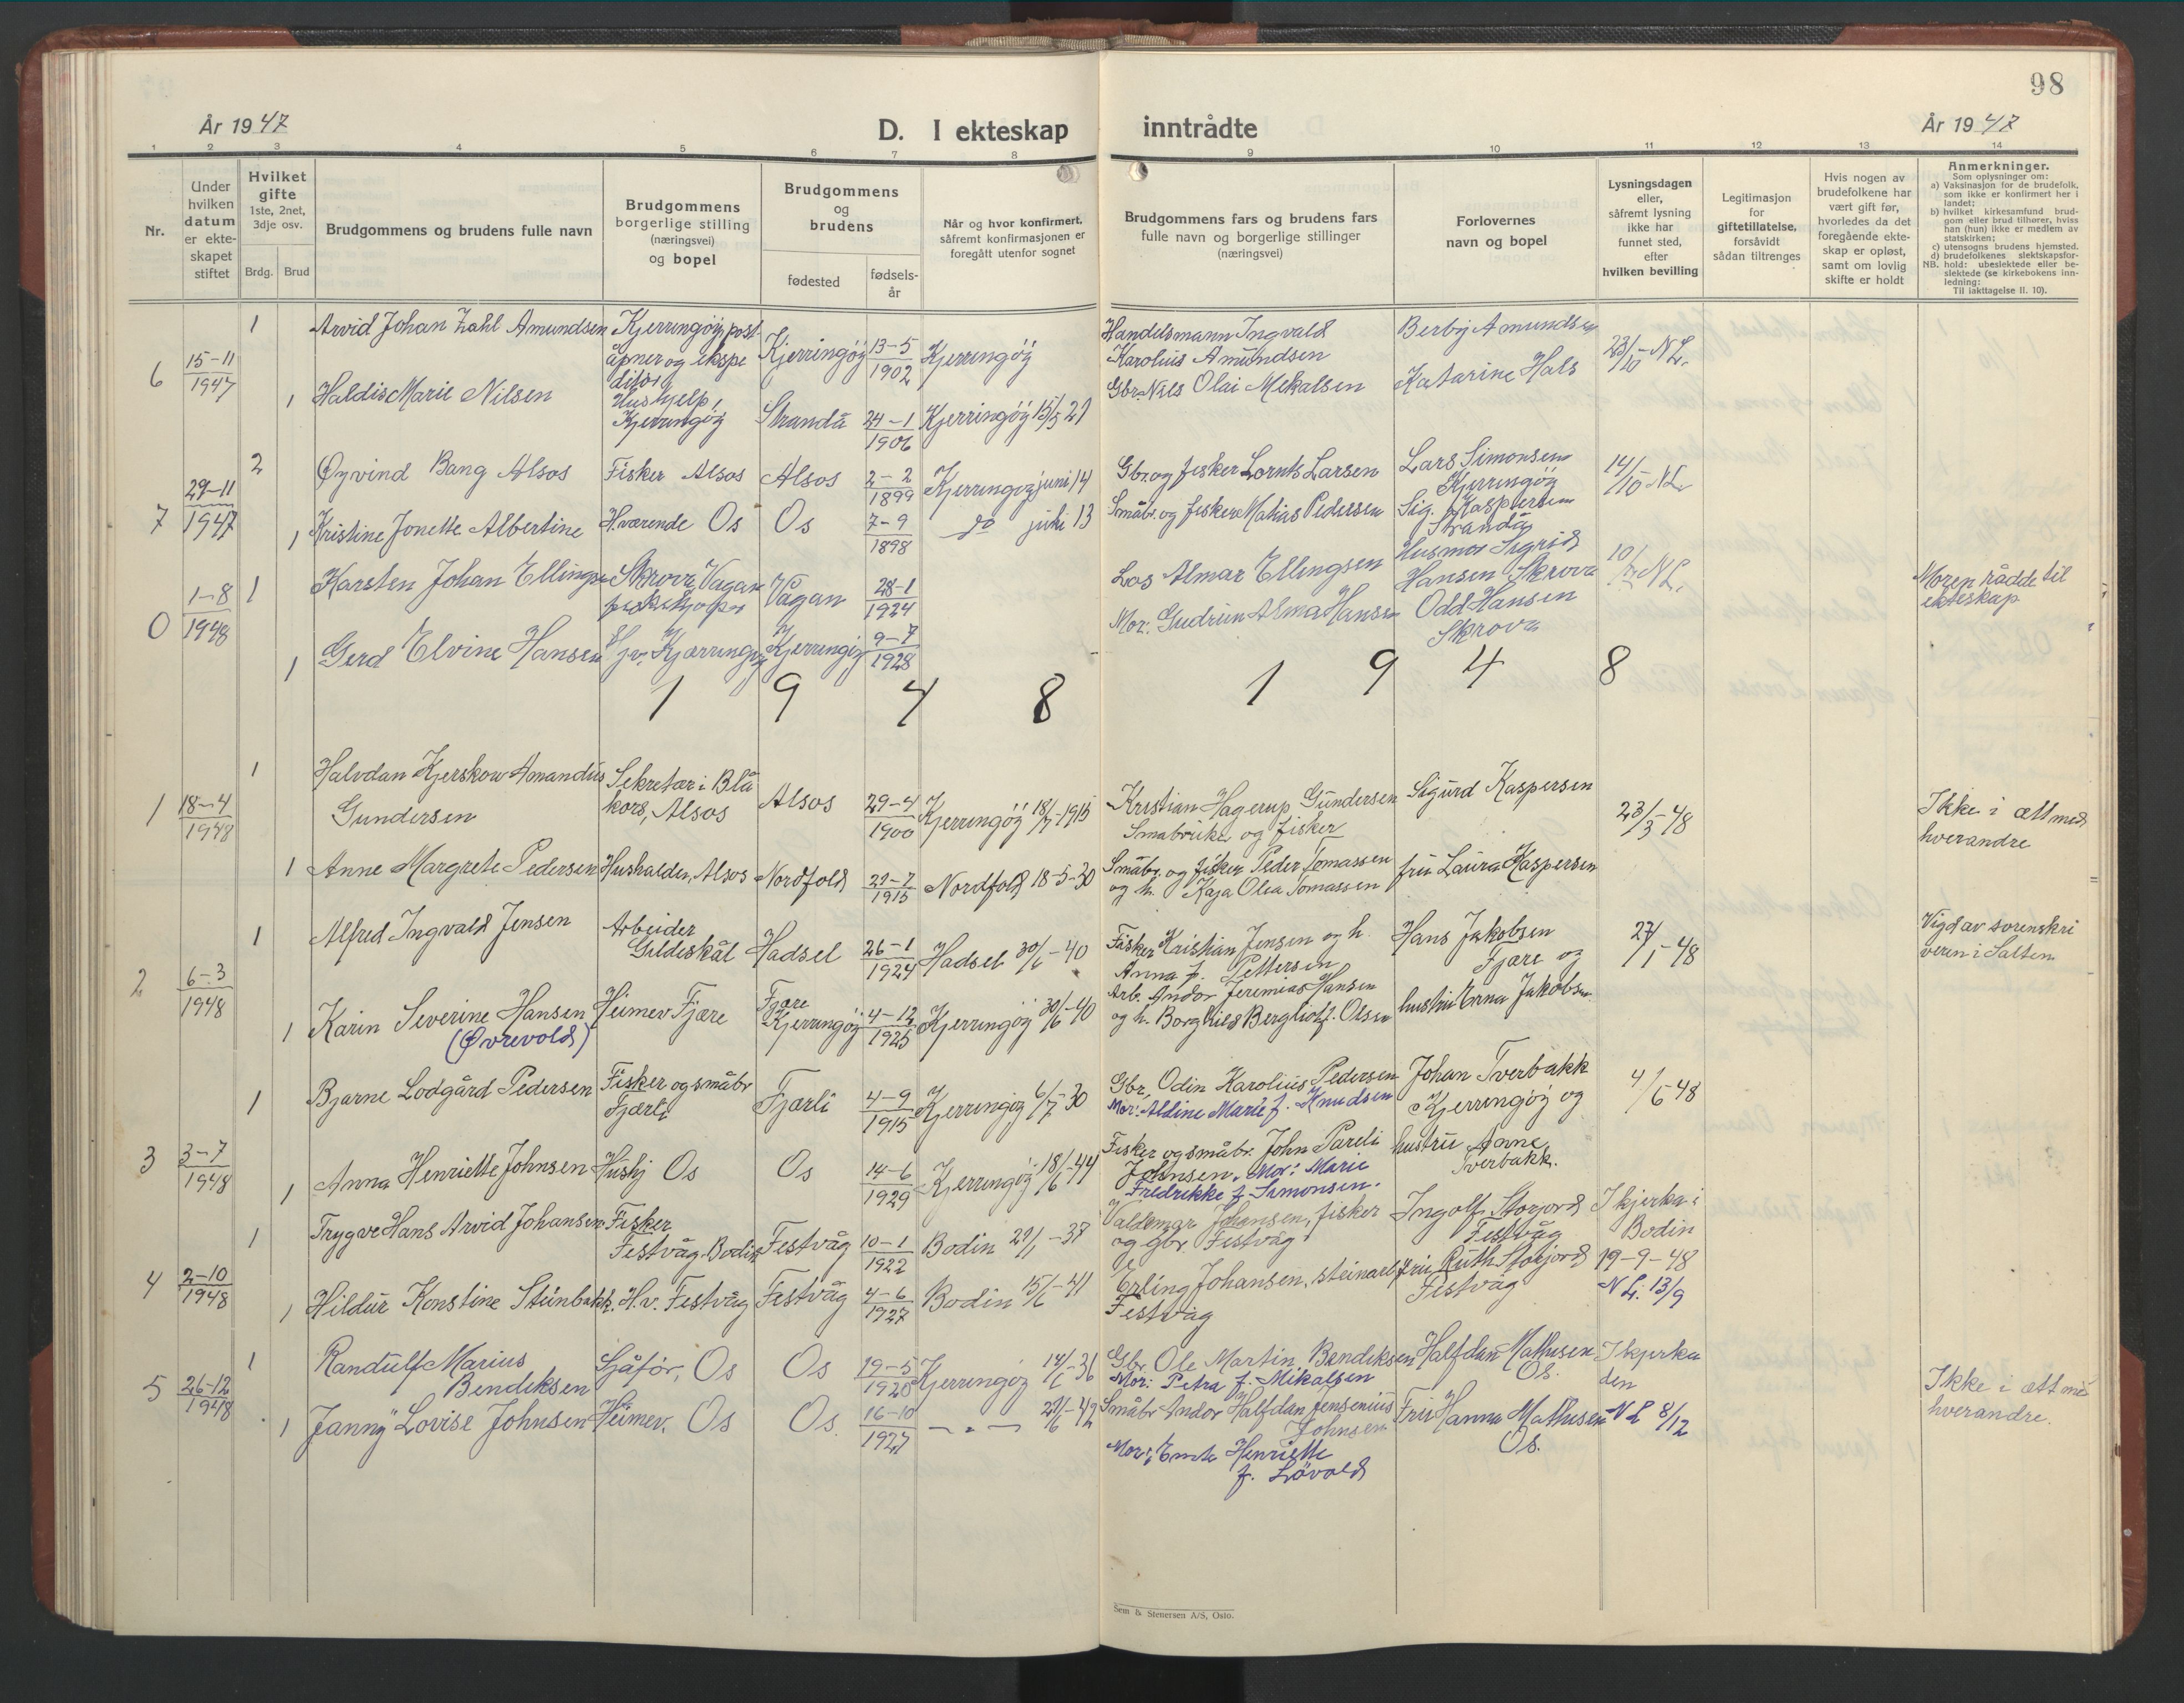 98
År 1947
D. I ekteskap inntrådte
År 1947
1 2 3 4 5 6 7 8 9 10 11 12 13 14
Nr.
Under hvilken datum er ekte-skapet stiftet
Hvilket gifte 1ste, 2net, 3dje osv.
Brdg. Brud
Brudgommens og brudens fulle navn
Brudgommens borgerlige stilling (næringsvei) og bopel
Brudgommens og brudens
fødested
fødsels-år
Når og hvor konfirmert, såfremt konfirmasjonen er foregått utenfor sognet
Brudgommens fars og brudens fars fulle navn og borgerlige stillinger (næringsvei)
Forlovernes navn og bopel
Lysningsdagen eller, såfremt lysning ikke har funnet sted, efter hvilken bevilling
Legitimasjon for giftetillatelse, forsåvidt sådan tiltrenges
Hvis nogen av brudefolkene har vært gift før, hvorledes da det foregående ekte-skap er opløst, samt om lovlig skifte er holdt
Anmerkninger.
Som oplysninger om:
a) Vaksinasjon for de brudefolk, som ikke er konfirmert her i landet;
b) hvilket kirkesamfund brud-gom eller brud tilhører, hviss han (hun) ikke er medlem av statskirken;
c) utensogns brudens hjemsted.
d) brudefolkenes slektskapsfor-hold: ubeslektede eller be-slektede (se kirkebokens inn-ledning:
NB.
Til iakttagelse II. 10).
6 15-11 1947
1 Arvid Johan Zahl Amundsen Kjerringöy, post-åpner og ekspeditör Kjerringöy 13-5 1902 Kjerringöy Handelsmann Ingvald Karolius Amundsen Berby Amundsen 23/10 - NL.
1 Haldis Marie Nilsen Hushjelp, Kjerringöy Strandå 24-1 1906 Kjerringöy 15/5 21 Gbr. Nils Olai Mekalsen Katarine Hals
7 29-11 1947
2 Øyvind Bang Alsos Fisker Alsos Alsos 2-2 1899 Kjerringöy juni 14 Gbr. og fisker Lornts Larsen Lars Simonsen Kjerringöy 14/10 - NL.
1 Kristine Jonette Albertine H.værende Os Os 7-9 1898 do juli 13 Småbr. og fisker Matias Pedersen Sig. Kaspersen Strandå
0 1-8 1948
1 Karsten Johan Ellingsen Skrova, Vågan fiskekjøper Vågan 28-1 1924 Los Almar Ellingsen Husmor Sigrid Hansen Skrova NL. Moren rådde til ekteskap
1 Gerd Elvine Hansen Hjv. Kjærringöy Kjerringöy 9-7 1928 Mor: Gudrun Alma Hansen Odd Hansen Skrova
1 9 4 8 1 9 4 8
1 18-4 1948
1 Halvdan Kjerskow Amandus Gundersen Sekretær i Blå kors, Alsos Alsos 29-4 1900 Kjerringöy 18/7-1915 Kristian Hagerup Gundersen Småbruker og fisker Sigurd Kaspersen 23/3-48 Ikke i ætt med hverandre
1 Anne Margrete Pedersen Husholder, Alsos Nordfold 29-7 1915 Nordfold 18-5-30 Småbr. og fisker Peder Tomassen og h. Kaja Olea Tomassen fru Laura Kaspersen
2 6-3 1948
1 Alfred Ingvald Jensen Arbeider Gildeskål Hadsel 26-1 1924 Hadsel 30/6-40 Fisker Kristian Jensen og h. Anna f. Pettersen Hans Jakobsen Fjære og 27/1-48 Vigd av sorenskriveren i Salten
1 Karin Severine Hansen (Øvrevold) Heimev Fjære Fjære Kjerringöy 4-12 1925 Kjerringöy 30/6-40 Arb. Andor Jeremias Hansen og h. Borghild Bergliot f. Olsen hustru Erna Jakobsen
3 3-7 1948
1 Bjarne Lodgård Pedersen Fisker og småbr Fjærli Fjærli 4-9 1915 Kjerringöy 6/7-30 Gbr, Odin Karolius Pedersen Mor: Aldine Marie f. Knudsen Johan Tverbakk Kjerringöy og 4/6 48
1 Anna Henriette Johnsen Hushj Os Os 14-6 1929 Kjerringöy 18/6-44 Fisker og småbr. John Pareli Johnsen. Mor: Marie Fredrikke f. Simonsen. hustru Anne Tverbakk.
4 2-10 1948
1 Trygve Hans Arvid Johansen Fisker Festvåg. Bodin Festvåg 10-1 1922 Bodin 29/1-38 Valdemar Johansen, fisker og gbr. Festvåg Ingolf Storjord Festvåg I kjerka i Bodin
1 Hildur Konstine Steinbakk. H.v. Festvåg Festvåg 4-6 1927 Bodin 15/6-41 Erling Johansen, steinarb Festvåg fru Ruth Storjord Festvåg 19-9-48 NL. 13/9
5 26-12 1948
1 Randulf Marius Bendiksen Sjåför, Os Os 19-5 1920 Kjerringöy 14/6-36 Gbr. Ole Martin Bendiksen Mor: Petra f. Mikalsen Halfdan Mathisen Os. I kjerka den Ikke i ætt me hverandre.
1 Janny Lovise Johnsen Heimev. Os Os. 16-10 1927 -"- 21/6-42 Småbr Andor Halfdan Jensenius Johnsen Mor: Henriette f. Lövold Fru Hanna Mathisen Os. NL 8/12
Sem & Stenersen A/S, Oslo.